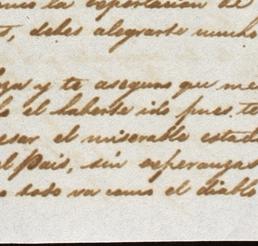 la esportacion de
debes alegrarte mucho
y te aseguro que me
el haberse ido pues te
el miserable estado
el Pais, sin esperanzas
todo va como el diablo